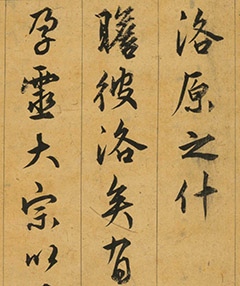 洛原之什
瞻彼洛矣
孕靈大宗以